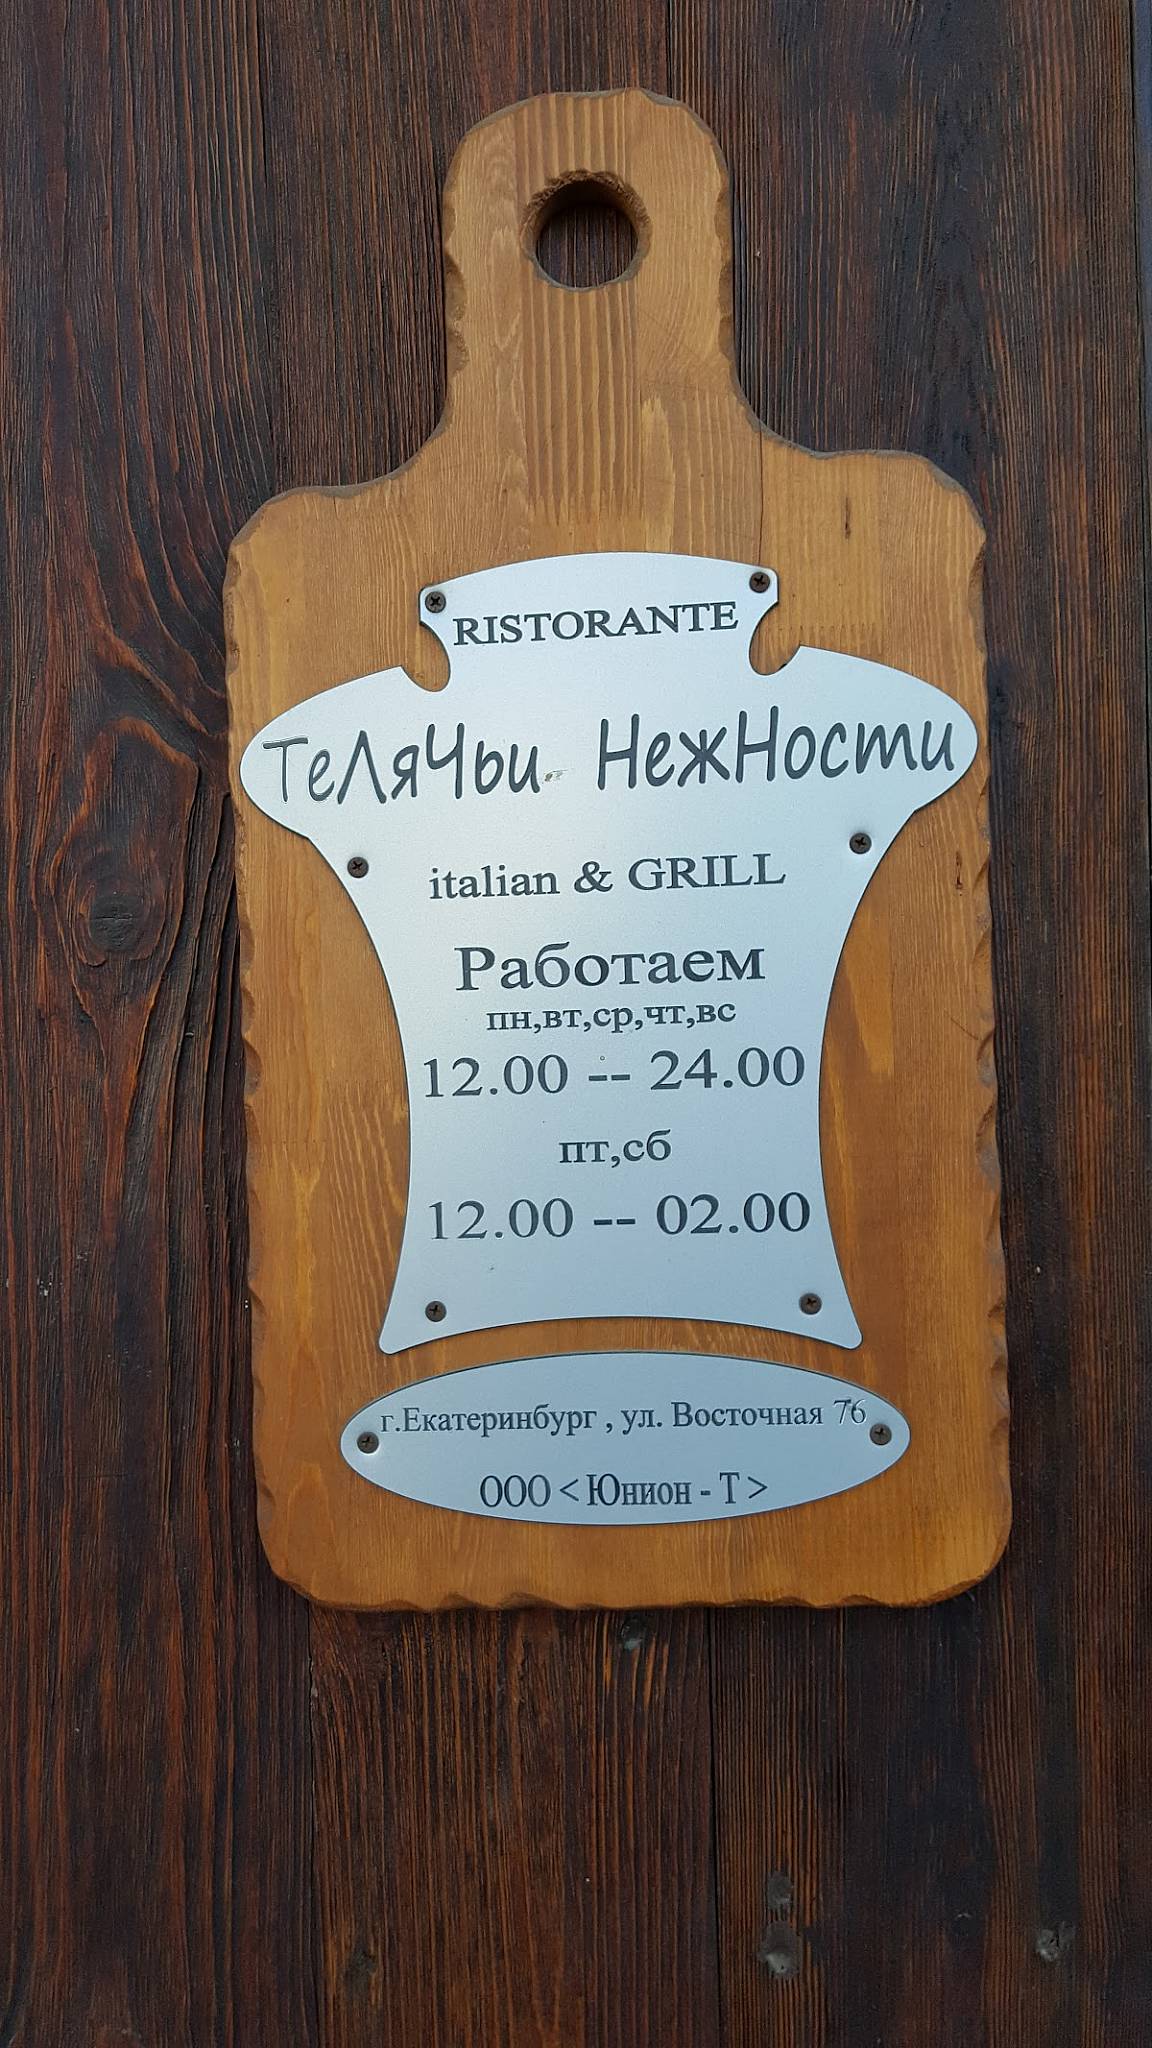 RISTORANTE
ТеЛяЧьи НежНости
italian & GRILL
Работаем
пн,вт,ср,чт,вс
12.00 -- 24.00
пт,сб
12.00 -- 02.00
г.Екатеринбург , ул. Восточная 76
ООО < Юнион - Т >